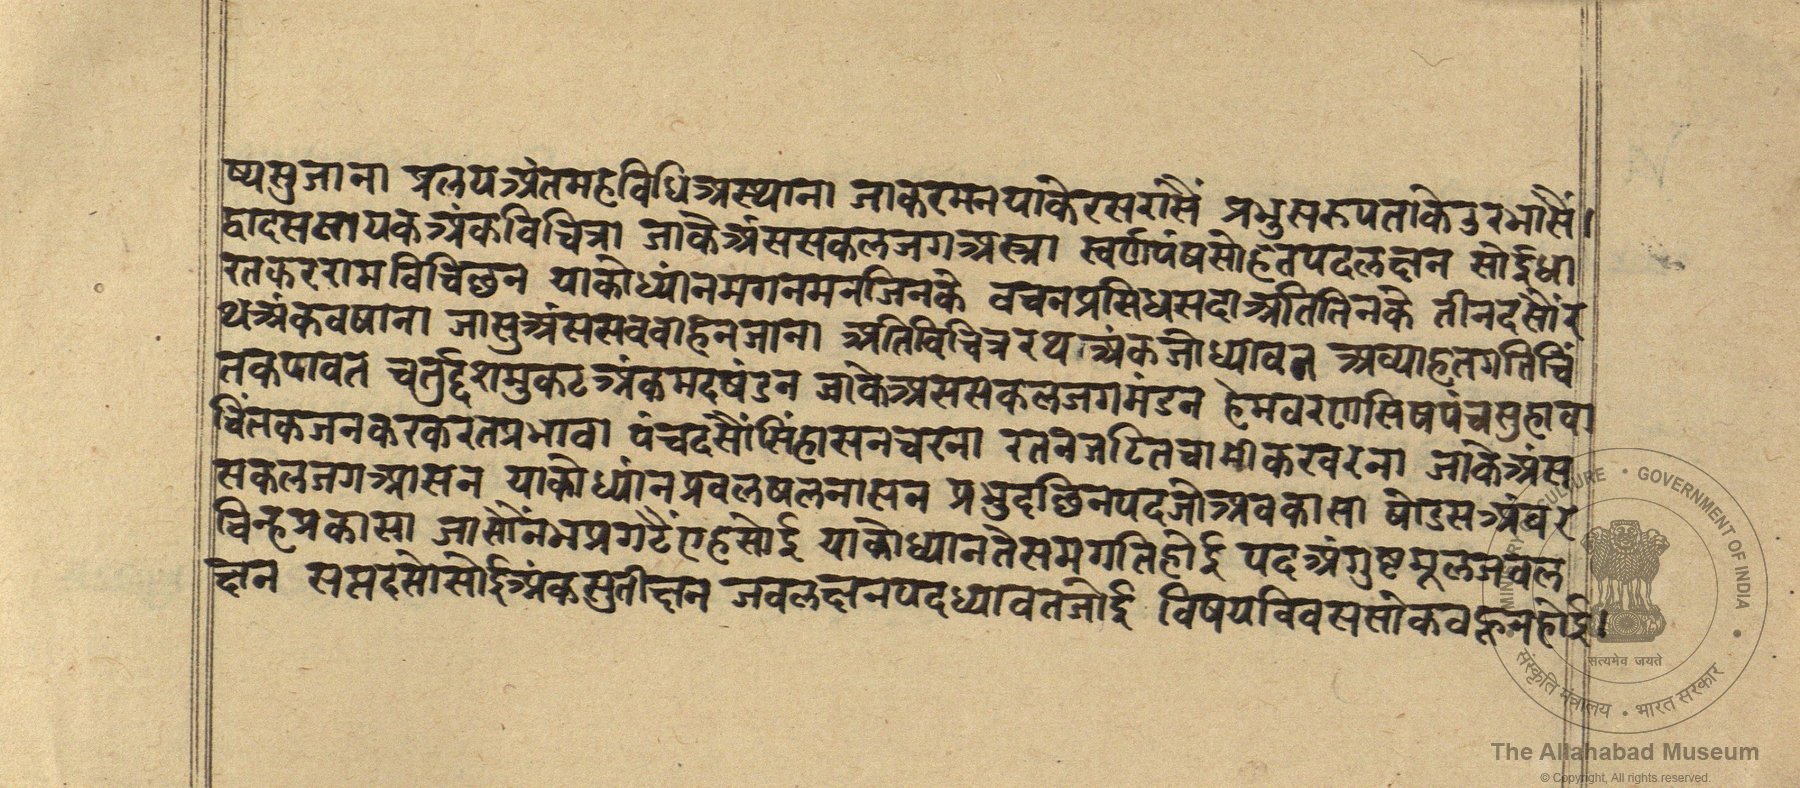 ष्यसुजाना प्रलयअंतमहविधिअस्थाना जाकरमनयाकेरसरासैं प्रभुसरूपताकेउरभासैं।
द्वादससायकअंकविचित्रा जाकैअंससकलजगअस्त्रा स्वर्णपंषसोहतपदलछन सोईधा
रतकररामविचिछन याकोध्यांनमगनमनजिनकै वचनप्रसिधसदाअतितिनकै तीनदसौंर
थअंकवषाना जासुअंससववाहनजाना अतिविचित्ररथअंकजोध्यावत अव्याहतगतिचिं
तकपावत चर्तुर्द्दशमुकटअंकमदषंडन जाकेअससकलजगमंडन हेमवरणसिषपंचसुहावा
चिंतकजनकरकरतप्रभावा पंचदसौंसिंहासनचरना रतनजटितचामीकरवरना जाकेअंस
सकलजगआसन याकोध्यांनप्रवलषलनासन प्रभुदछिनपदजोअवकासा षोडसअंवर
चिन्हप्रकासा जासौंनभप्रगटैंएहसोई याकोध्यानतैसमगतिहोई पदअंगुष्टमूलजवल
छन सप्तदसोसोईअंकसुतीछन जवलछनपदध्यावतजोई विषयविवससोकवहूनहोई।
MINISTRY OF CULTURE • GOVERNMENT OF INDIA
सत्यमेव जयते
संस्कृति मंत्रालय • भारत सरकार
The Allahabad Museum
© Copyright, All rights reserved.